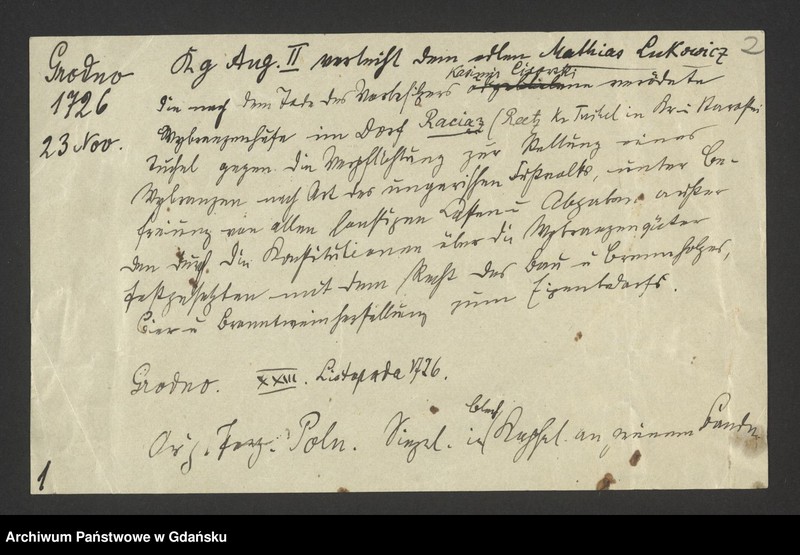 2
Grodno
1726
23 Nov.
Kg Aug. II verleiht dem edlen Mathias Lukowicz
die nach dem Tode des Vorbesitzers verödete
Wybranzenhufe im Dorf Raciaz (Reetz Kr Tuchel in Kr u Starostei
Tuchel gegen die Verpflichtung zur Stellung eines
Wybranzen nach Art des ungarischen Fußvolks, unter Be-
freiung von allen sonstigen Lasten u Abgaben außer
den durch die Konstitutionen über die Wybranzengüter
festgesetzten mit dem Recht des Bau u Brennholzes,
Bier u Branntweinherstellung zum Eigenbedarf.
Grodno. XXIII. Listopada 1726.
Blech
Orig. Perg. Poln. Siegel. in Kapsel an einem Bande
1
Archiwum Państwowe w Gdańsku